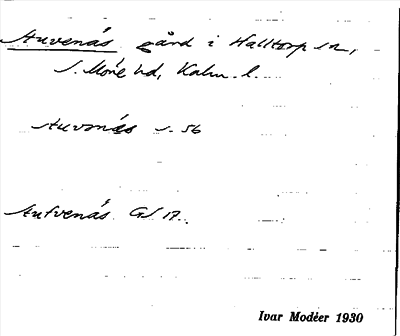 Stuvenäs gård i Halltorp sn,
S. Möre hd, Kalm. l.
Stuvenäs s. 56
Stufvenäs GS 17.
Ivar Modéer 1930